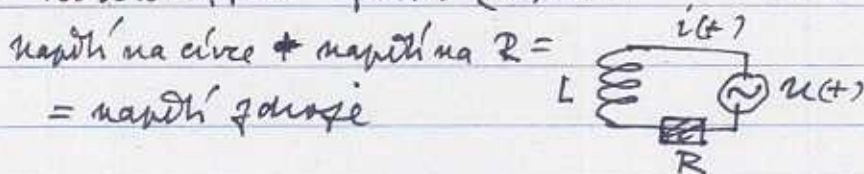 napětí na cívce + napětí na R =
= napětí zdroje
i(t)
L
u(t)
R